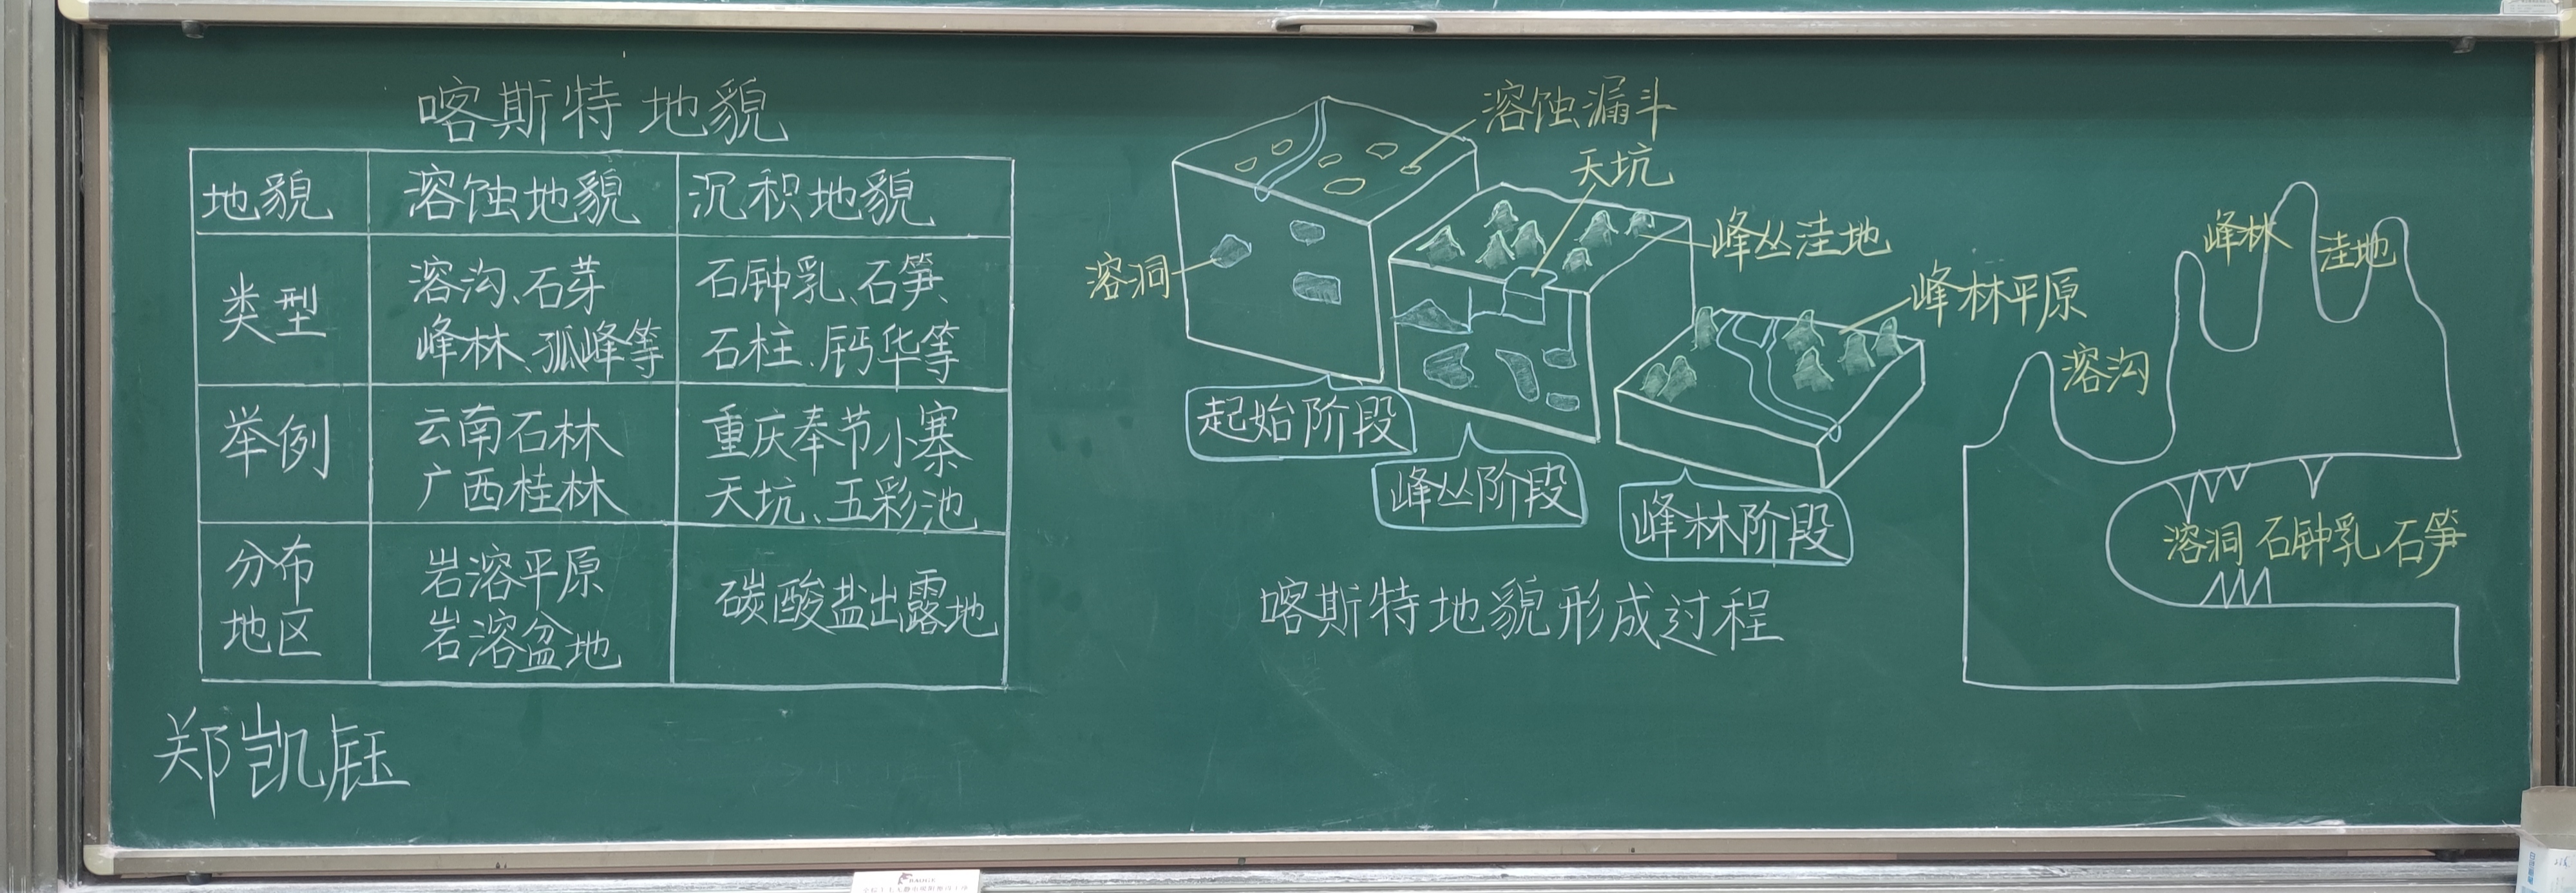 喀斯特地貌
地貌 溶蚀地貌 沉积地貌
类型
溶沟、石芽
峰林、孤峰等
石钟乳、石笋、
石柱、钙华等
举例
云南石林
广西桂林
重庆奉节小寨
天坑、五彩池
分布
地区
岩溶平原
岩溶盆地
碳酸盐出露地
郑凯钰
溶蚀漏斗
天坑
峰丛洼地
溶洞
峰林平原
起始阶段
峰丛阶段
峰林阶段
喀斯特地貌形成过程
峰林
洼地
溶沟
溶洞 石钟乳 石笋